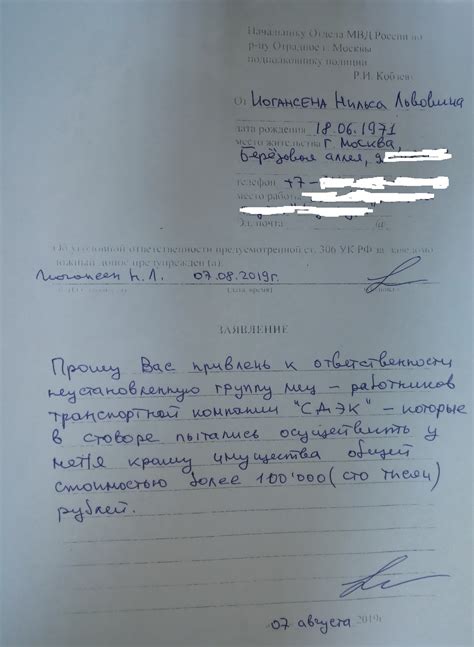 Начальнику Отдела МВД России по
р-ну Отрадное г. Москвы
подполковнику полиции
Р.И.
От Иогансена Нильса Львовича
дата рождения 18.06.1971
место жительства г. Москва,
Берёзовая аллея, д.
телефон +7-
место работы
Эл. почта
Об уголовной ответственности предусмотренной ст. 306 УК РФ за заведомо
ложный донос предупрежден (а):
Иогансен Н.Л. 07.08.2019г.
(дата, время)
ЗАЯВЛЕНИЕ
Прошу Вас привлечь к ответственности
неустановленную группу лиц – работников
транспортной компании "СДЭК" – которые
в сговоре пытались осуществить у
меня кражу имущества общей
стоимостью более 100'000 (сто тысяч)
рублей.
07 августа 2019г